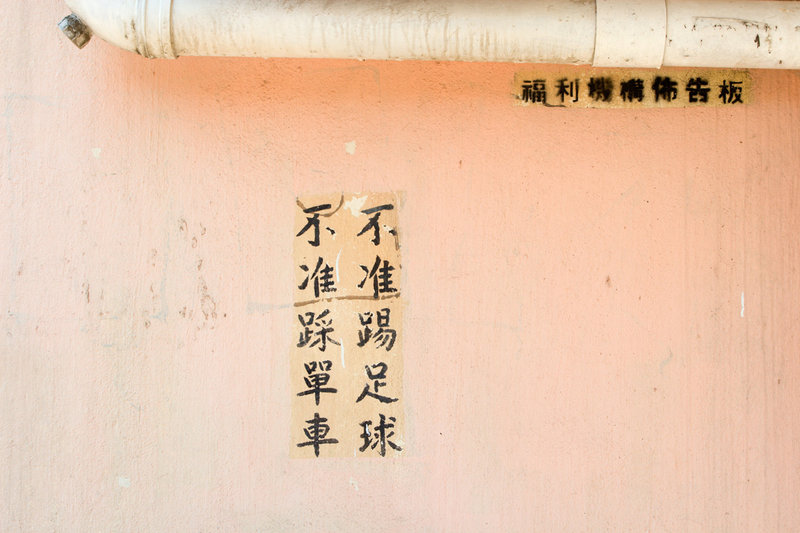 福利機構佈告板
不准踢足球
不准踩單車